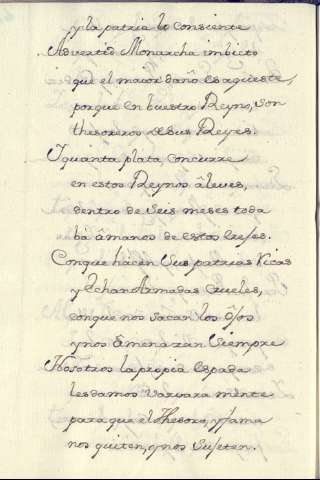 y la patria lo consiente
Adverted Monarcha imbicto
que el maior daño es aqueste,
porque en buestro Reyno, son
thesoreros de sus Reyes.
Y quanta plata concurre
en estos Reynos âleves,
dentro de seis meses toda
bâ âmanos de estos
Conque hacen sus patrias Ricas
y echan Armadas crueles,
conque nos sacan los ôjos
y nos âmenazan siempre
Nosotros la propia espada
les damos varvara mente
para que el thesoro, y fama
nos quiten, y nos sujeten.